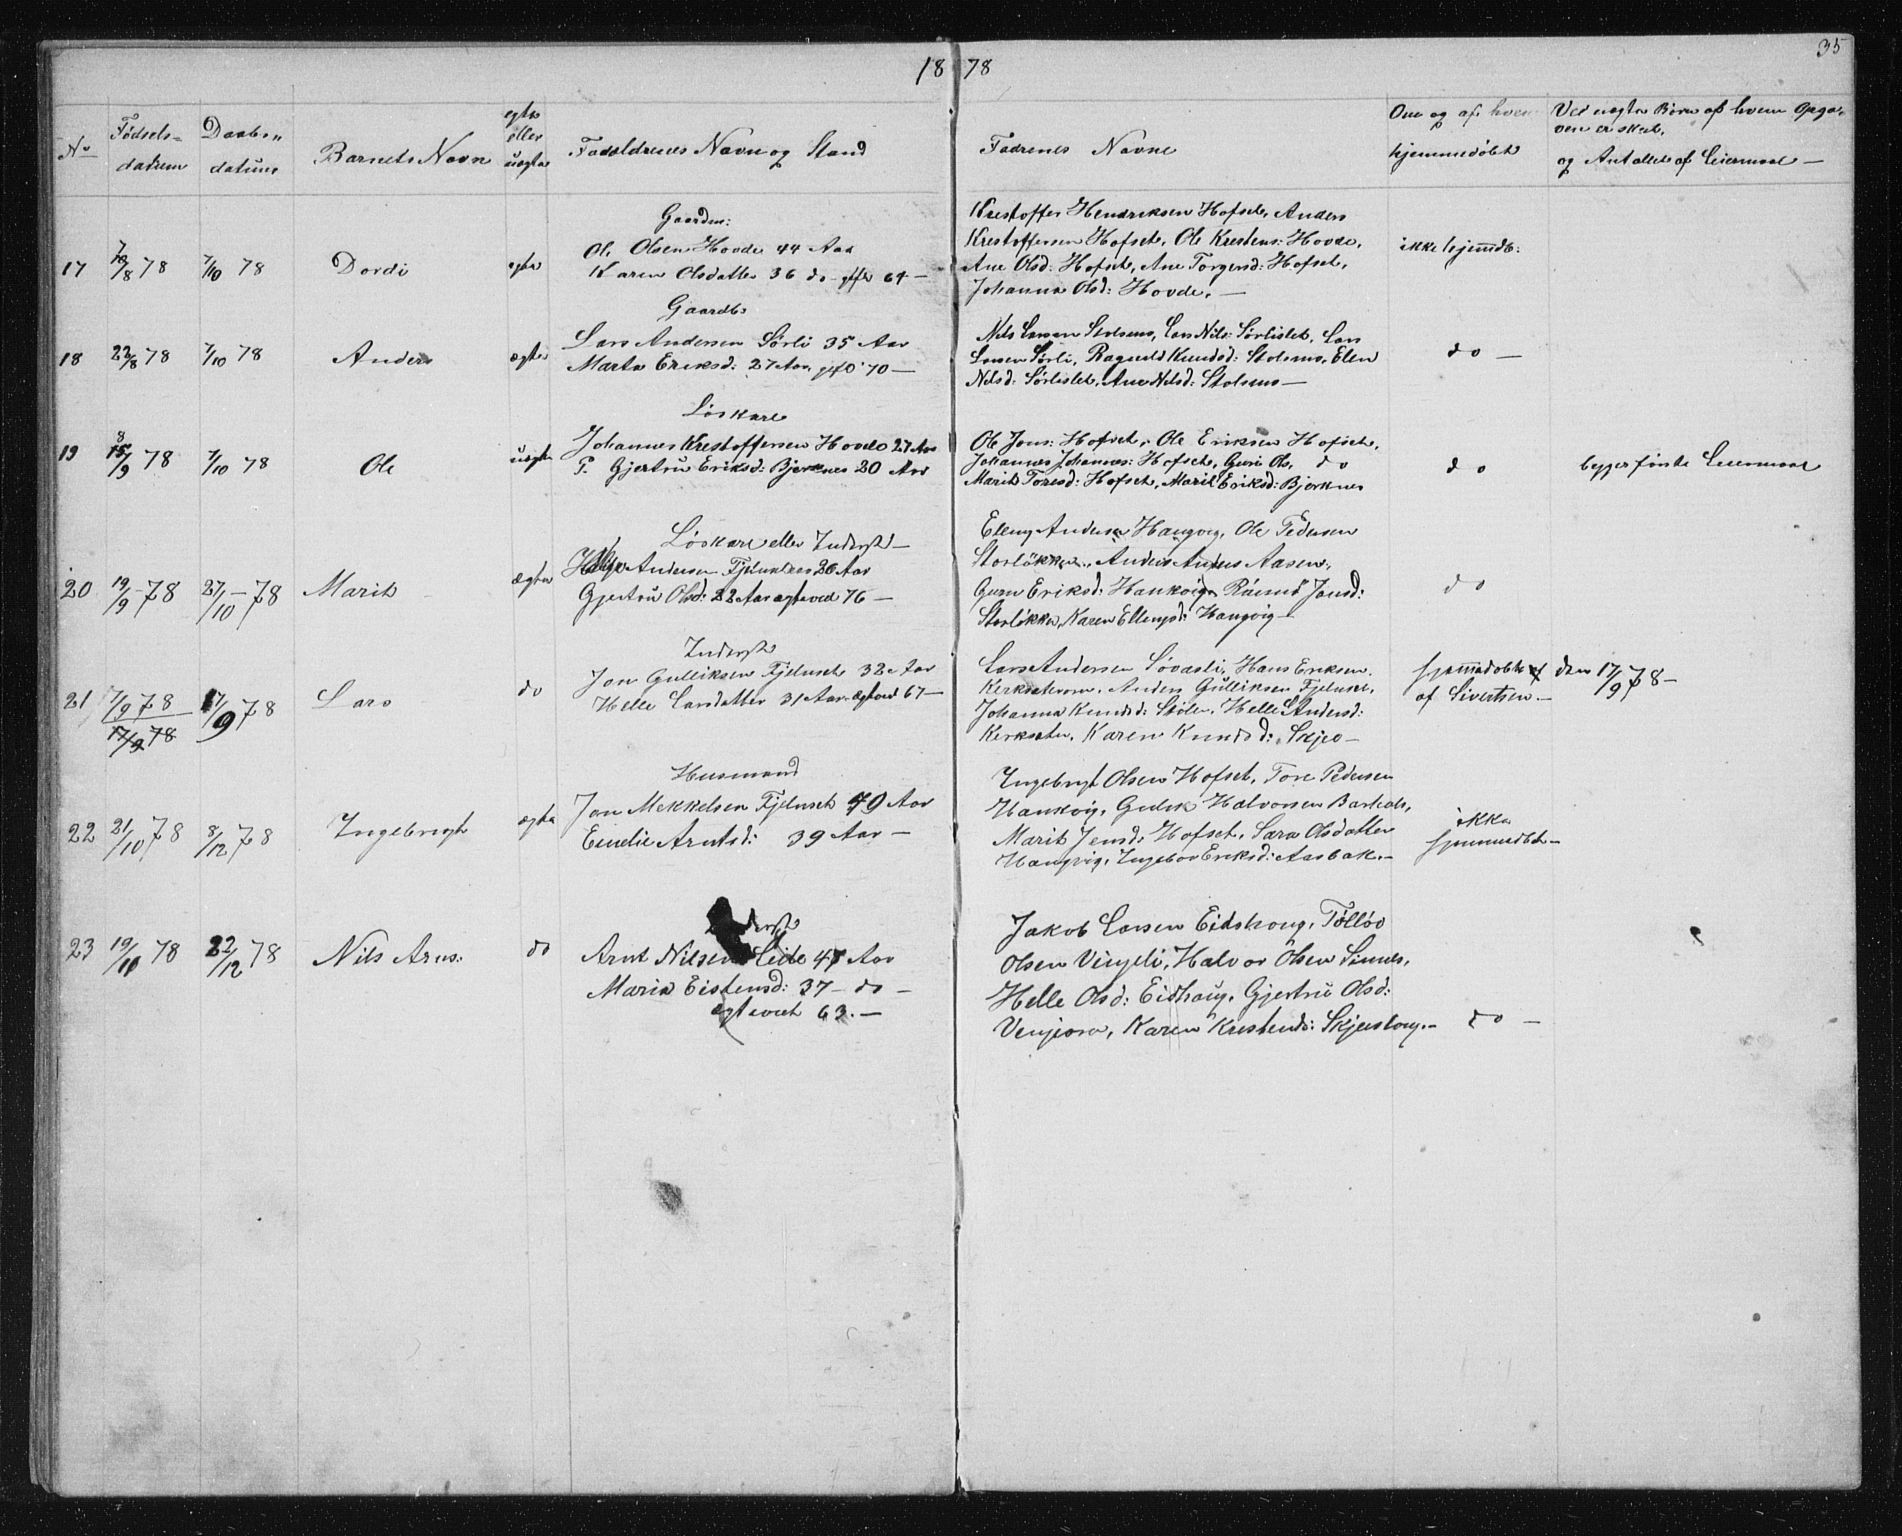 1878
35
No
Fødsels-
datum
Daabs-
datum
Barnets Navn
egte
eller
uægte
Forældrenes Navn og Stand
Fadrenes Navne
Om og af hvem
hjemmedøbt
Ved uegte Børn af hvem Opga-
ven er skeet,
og Antallet af Leiermaal —
17 /8 78 7/10 78 Dordi egte
Gaardm:
Ole Olsen Hovde 44 Aar
Karen Olsdatter 36 do gift 64 —
Krestoffer Hendriksen Hofset, Anders
Krestoffersen Hofset, Ole Krestens: Hovde,
Ane Olsd: Hofset, Ane Torgersd: Hofset,
Johanna Olsd: Hovde. —
ikke hjemdb:
18 22/8 78 7/10 78 Anders egte
Gaardb:
Lars Andersen Sørli 35 Aar
Marta Eriksd: 27 Aar, gift 70 —
Nils Larsen Stolsmo, Lars Nils: Sørlislet, Lars
Larsen Sørli, Ragnild Knudsd: Stolsmo, Elen
Nilsd: Sørlislet, Ane Nilsd: Stolsmo —
do —
19 /9 78 7/10 78 Ole uegte
Løskare
Johannes Krestoffersen Hovde 27 Aar
P. Gjertru Eriksd: Bjerknes 20 Aar
Ole Jons: Hofset, Ole Eriksen Hofset,
Johannes Johannes: Hofset, Guri Ols. do
Marit Toresd: Hofset, Marit Eriksd: Bjerknes
do
begges første Leiermaal
20 19/9 78 27/10 78 Marit ægte
Løskare eller Inderst —
Andersen Fjelnset 26 Aar
Gjertru Olsd: 22 Aar egteved 76 —
Elleng Andersen Haugvig, Ole Pedersen
Storløkken, Anders Anders Aasen,
Guru Eriksd: Hankvig, Jonsd:
Storløkken, Karen Ellengsd: Haugvig —
do
21 7/9 78 17/9 78 Lars do
17/9 78
Inderst
Jon Gulliksen Fjelnset 32 Aar
Helle Larsdatter 31 Aar egteved 67 —
Lars Andersen Løvaslí, Hans Eriksen
Anders Gulliksen Fjelnset,
Johanna Knudsd: Stølen, Helle Andersd:
Kerksæter, Karen Knudsd: Skjeo —
hjemmedøbt den 17/9 78 —
af Sivertsen —
22 21/10 78 8/12 78 Ingebrigt ægte
Husmand
Jon Mekkelsen Fjelnset 40 Aar
Emelie Arntsd: 39 Aar —
Ingebrigt Olsen Hofset, Tore Pedersen
Hankvig, Gulek Halvorsen
Marit Jensd: Hofset, Sara Olsdatter
Haugvig, Ingebor Eriksd: Aasbak. —
ikke
hjemmedbt —
23 19/10 78 22/12 78 Nils Arns: do
Inderst
Arnt Nilsen Lide 47 Aar
Maria Eistensd: 37 — do —
ægteviet 63. —
Jakob Larsen Eidshoug, Tølløv
Olsen Vinjeli, Halvor Olsen Sinnes,
Helle Olsd: Eidhaug, Gjertru Olsd:
Vinjeøra, Karen Krestensd: Skjerstoug. — do —